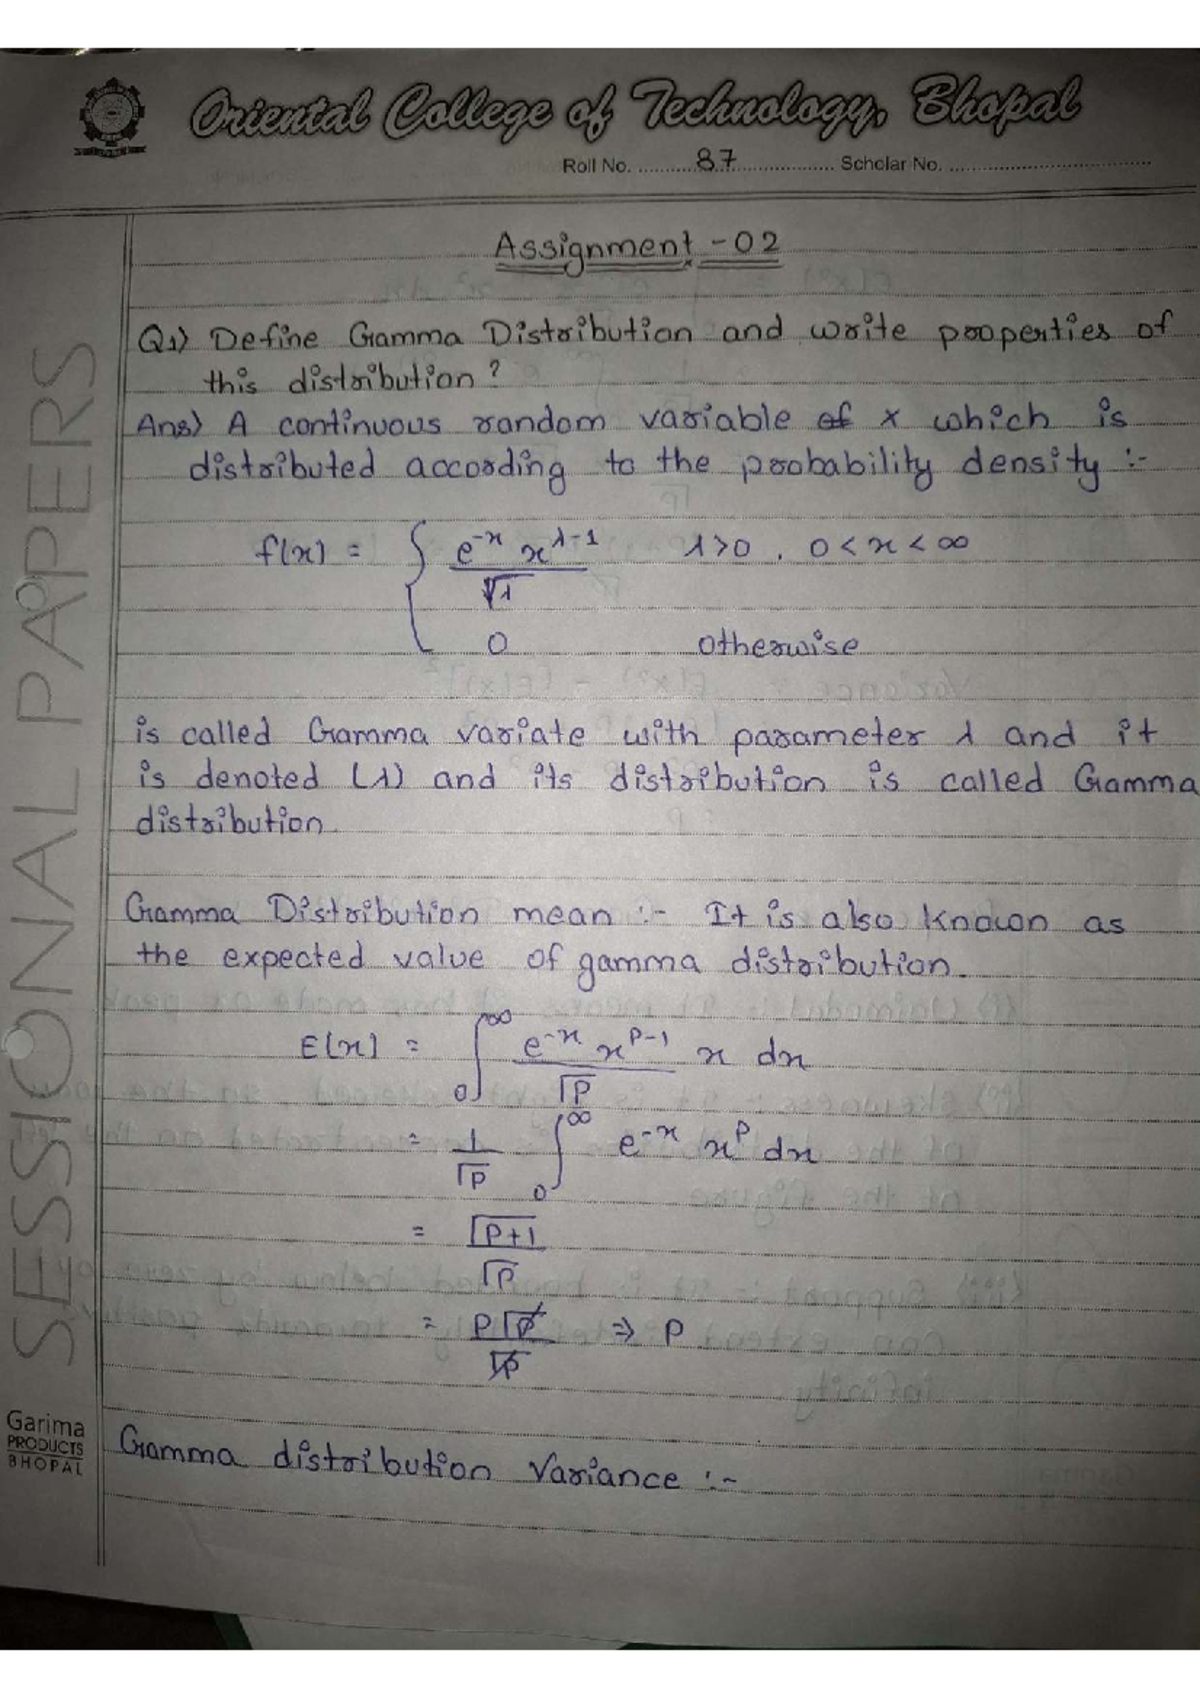 Oriental College of Technology, Bhopal
Roll No. ............87.................. Scholar No. ..................................
Assignment - 02
Q1) Define Gamma Distribution and write properties of
this distribution ?
Ans) A continuous random variable of x which is
distributed according to the probability density :-
f(x) = { e^-x x^λ-1 / √λ λ>0 , 0 < x < ∞
0 otherwise
is called Gamma variate with parameter λ and it
is denoted (λ) and its distribution is called Gamma
distribution.
Gamma Distribution mean :- It is also known as
the expected value of gamma distribution.
E(x) = ∫₀^∞ e^-x x^P-1 / ΓP x dx
= 1/ΓP ∫₀^∞ e^-x x^P dx
= ΓP+1 / ΓP
= PΓP / ΓP ⇒ P
Gamma distribution Variance :-
SESSIONAL PAPERS
Garima
PRODUCTS
BHOPAL